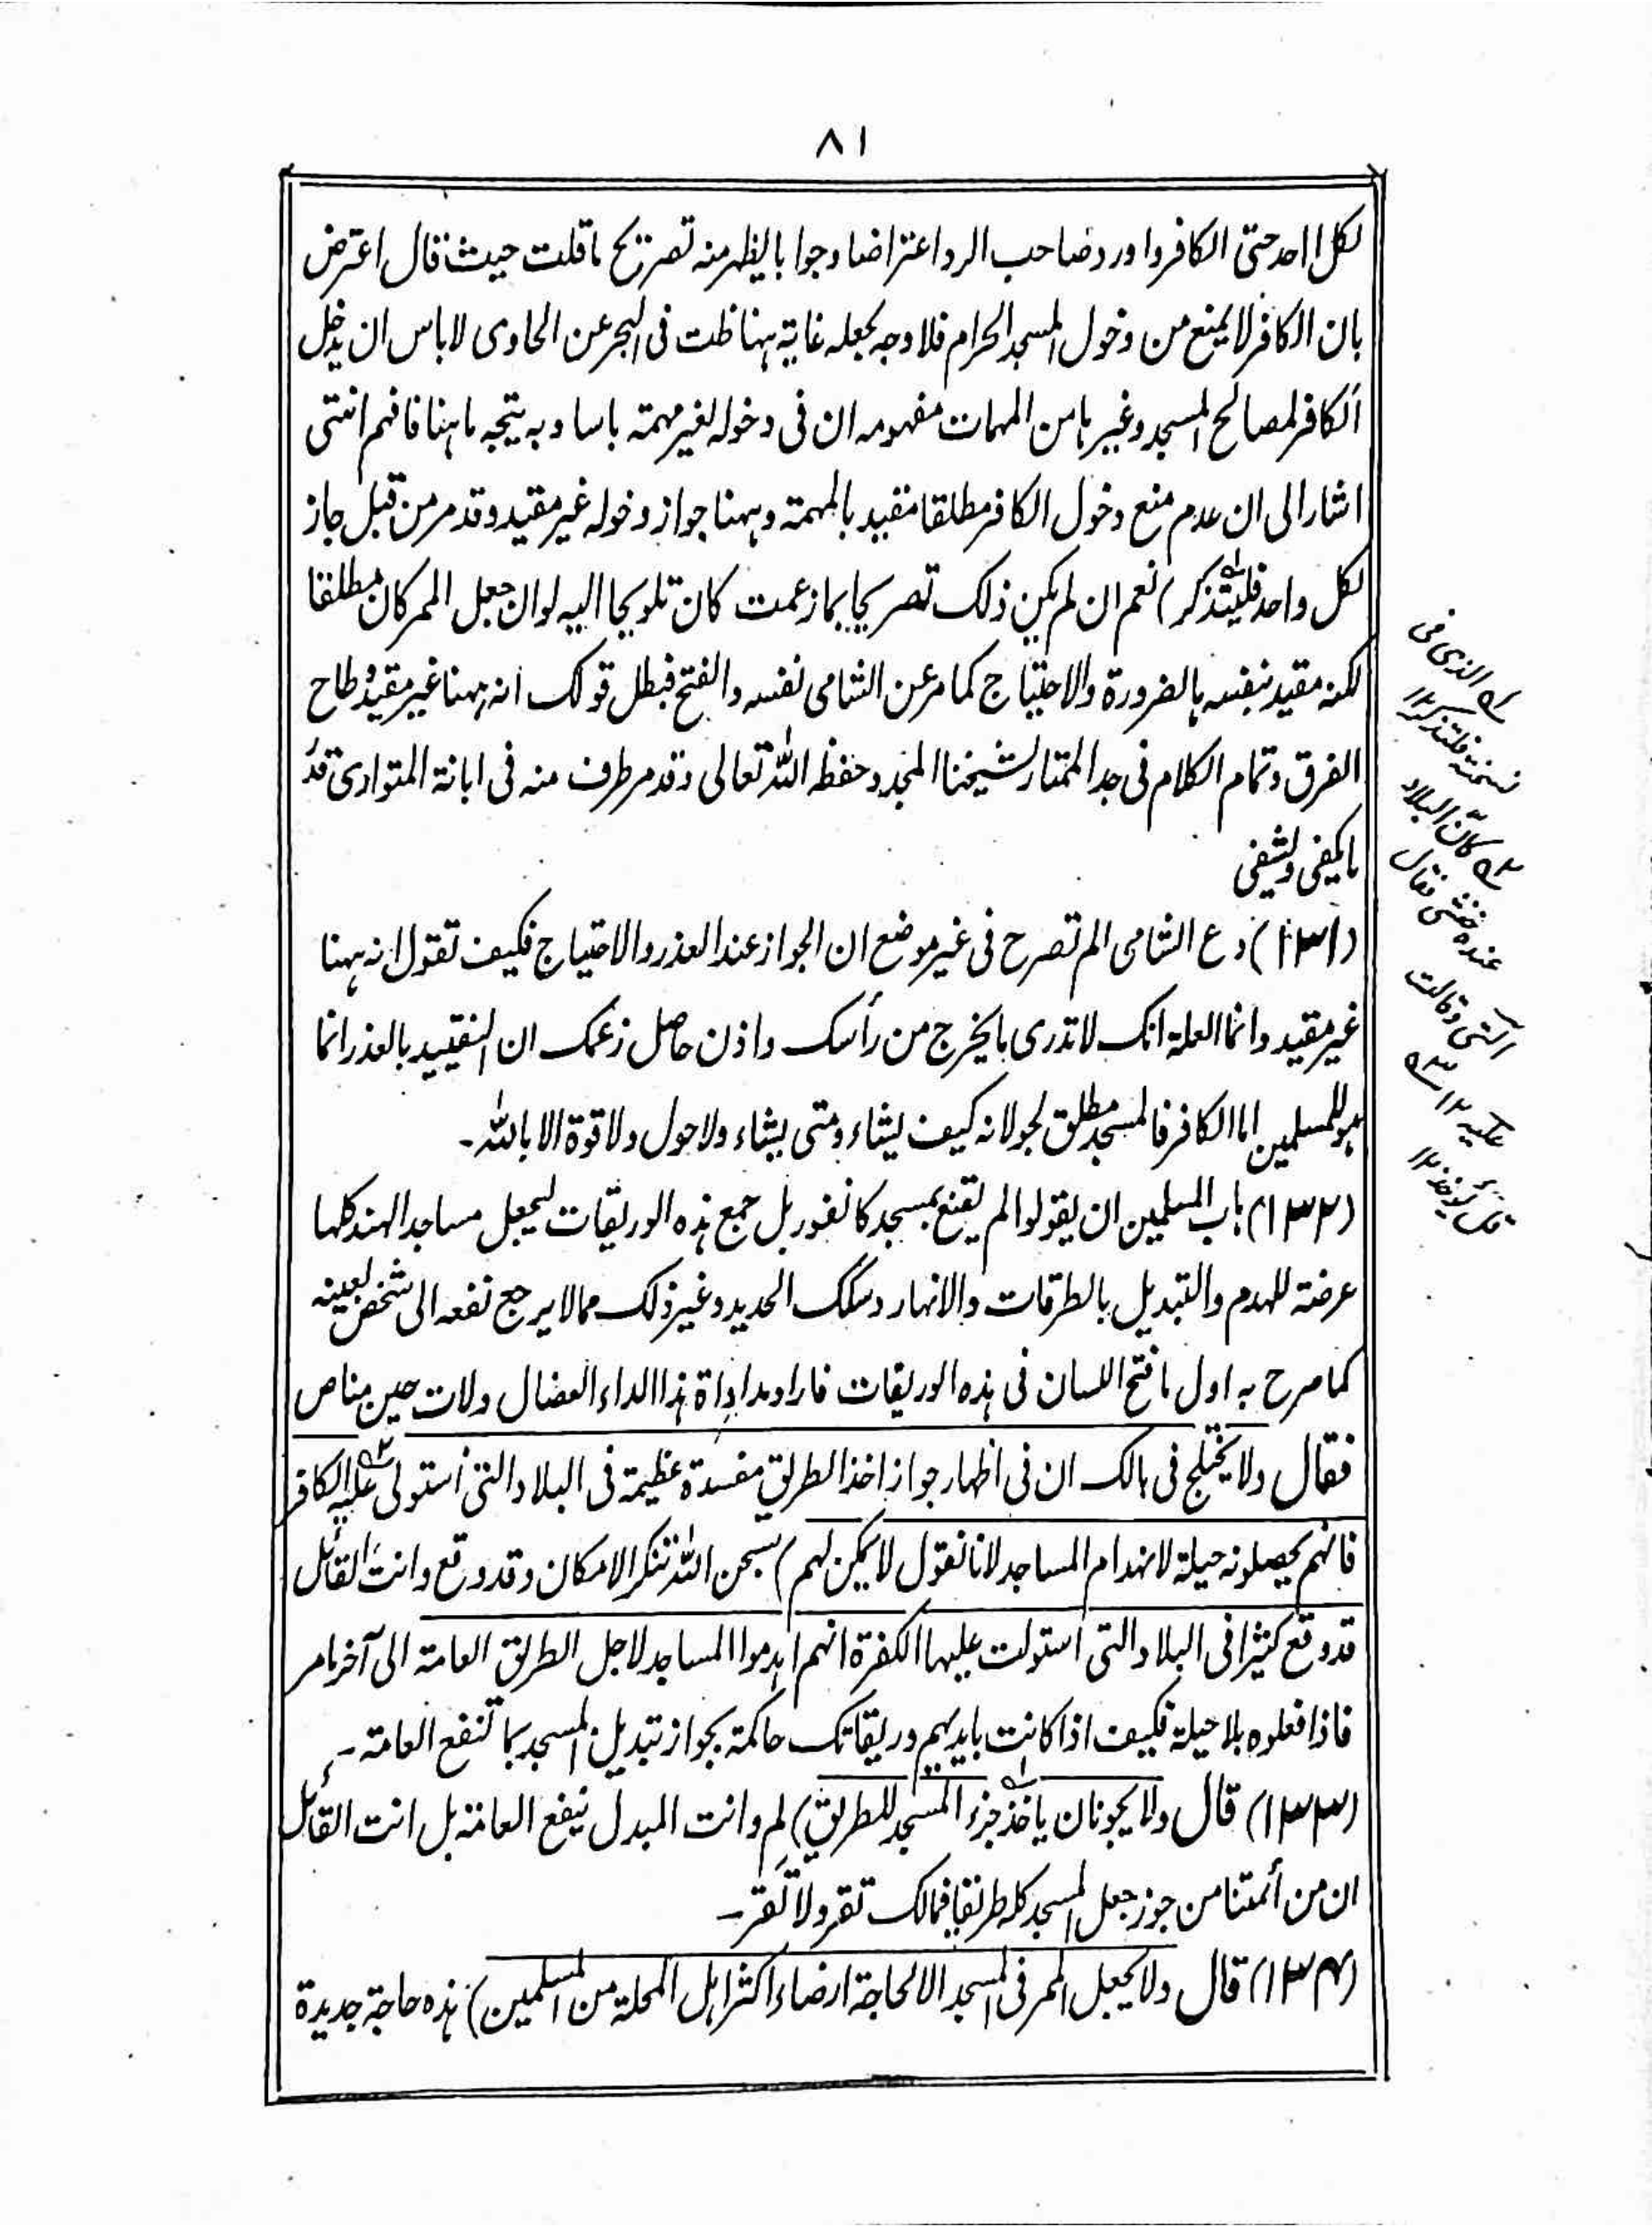 ٨١
لكل احد حتى الكافر واورد صاحب الرد اعتراضا وجوابا يظهر منه تصريح ما قلت حيث قال اعترض
بان الكافر لا يمنع من دخول المسجد الحرام فلا وجه لجعله غاية ههنا قلت فى البحر عن الحاوى لاباس ان يدخل
الكافر لمصالح المسجد وغيرها من المهمات مفهومه ان فى دخوله لغير مهمة باسا وبه يتجه ما ههنا فافهم انتهى
اشار الى ان عدم منع دخول الكافر مطلقا مقيد بالمهمة وههنا جواز دخوله غير مقيد وقد مر من قبل جاز
لكل واحد فليتذكر) نعم ان لم يكن ذلك تصريحا بما زعمت كان تلويحا اليه لو ان جعل الممر كان مطلقا
لكنه مقيد بنفسه بالضرورة والاحتياج كما مر عن الشامى نفسه والفتح فبطل قولك انه ههنا غير مقيد وطاح
الفرق وتمام الكلام فى جد الممتار لشيخنا المجدد حفظه الله تعالى وقد مر طرف منه فى ابانة المتوارى قدر
ما يكفى ويشفى
(١٣١) دع الشامى الم تصرح فى غير موضع ان الجواز عند العذر والاحتياج فكيف تقول انه ههنا
غير مقيد وانما العلة انك لا تدرى ما يخرج من رأسك واذن حاصل زعمك ان التقييد بالعذر انما
هو للمسلمين اما الكافر فالمسجد مطلق لجولانه كيف يشاء ومتى يشاء ولا حول ولا قوة الا بالله۔
(١٣٢) هاب المسلمين ان يقولوا لم يقنع بمسجد كانفور بل جمع هذه الوريقات ليجعل مساجد الهند كلها
عرضة للهدم والتبديل بالطرقات والانهار وسكك الحديد وغير ذلك مما لا يرجع نفعه الى شخص بعينه
كما صرح به اول ما فتح اللسان فى هذه الوريقات فاراد مداواة هذا الداء العضال ولات حين مناص
فقال ولا يختلج فى بالك ان فى اظهار جواز اخذ الطريق مفسدة عظيمة فى البلاد التى استولى عليه الكافر
فانهم يحصلونه حيلة لانهدام المساجد لانا نقول لا يمكن لهم) سبحن الله تنكر الامكان وقد وقع وانت القائل
قد وقع كثيرا فى البلاد التى استولت عليها الكفرة انهم اهدموا المساجد لاجل الطريق العامة الى آخر ما مر
فاذا فعلوه بلا حيلة فكيف اذا كانت بايديهم وريقاتك حاكمة بجواز تبديل المسجد بما تنفع العامة۔
(١٣٣) قال ولا يجوز ان ياخذ جزء المسجد للطريق) لم وانت المبدل بنفع العامة بل انت القائل
ان من أئمتنا من جوز جعل المسجد كله طريقا فمالك تقر ولا تقر۔
(١٣٤) قال ولا يجعل الممر فى المسجد الا لحاجة ارضاء اكثر اهل المحلة من المسلمين) هذه حاجة جديدة
الذى فى
نسخته فلتذكر ١٢
كأنّ البلاد
عنده خنثى فقال
التى وقالت
عليه ١٢